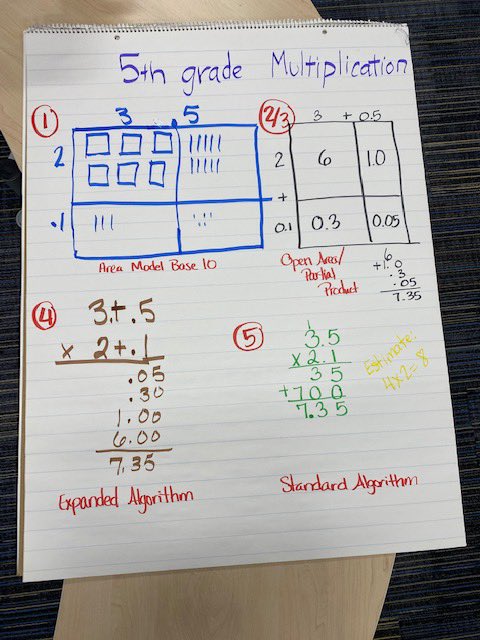 5th grade Multiplication
1
3 . 5
2
.1
Area Model Base 10
2/3
3 + 0.5
2 6 1.0
+
0.1 0.3 0.05
Open Area/
Partial
Product
6
+1.0
.3
.05
7.35
4
3.+.5
x 2+.1
.05
.30
1.00
6.00
7.35
Expanded Algorithm
5
1
3.5
x 2.1
35
+700
7.35
Estimate:
4x2=8
Standard Algorithm